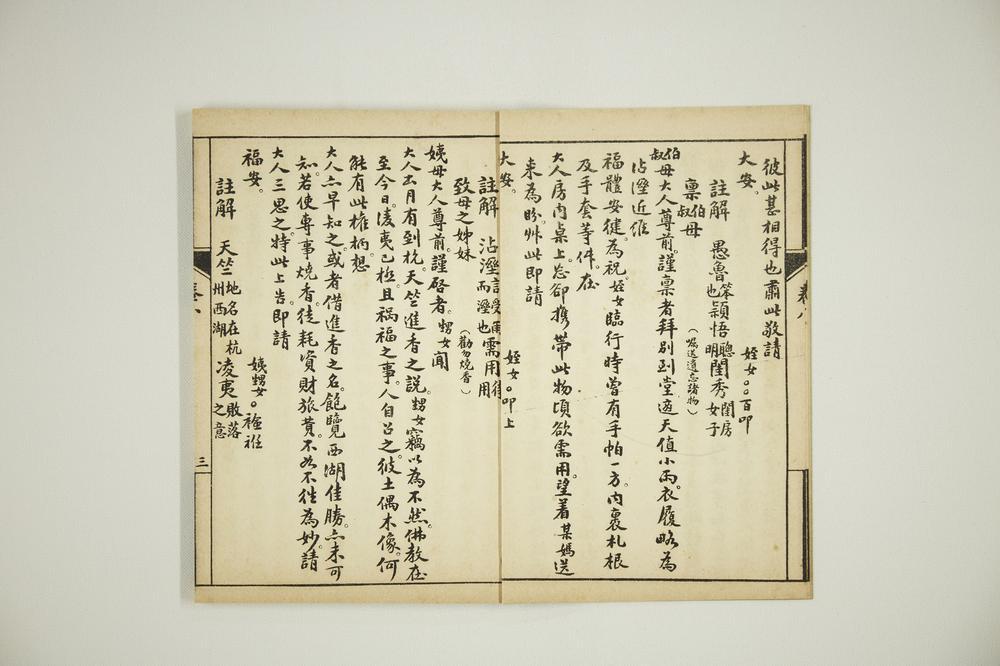 彼此甚相得也。肅此敬請
大安。
姪女○○百叩
註解 愚魯 笨也 穎悟 聰明 閨秀 閨房女子
稟伯叔母
(囑送遺忘諸物)
伯叔母大人尊前。謹稟者拜別到堂適天值小雨。衣履略為
沾溼近維
福體安健為祝。姪女臨行時嘗有手帕一方。內裏札根
及手套等件。在
大人房內桌上。忘卻攜帶此物頃欲需用。望着某媽送
來為盼。艸此即請
大安。
姪女○叩上
註解 沾溼 言受雨而溼也 需用 得用
致母之姊妹
(勸勿燒香)
姨母大人尊前。謹啓者。甥女聞
大人出月有到杭。天竺進香之說。甥女竊以為不然。佛教在
至今日。凌夷已極。且禍福之事。人自召之。彼土偶木像。何
能有此權柄。想
大人亦早知之。或者借進香之名。飽覽西湖佳勝。亦未可
知。若使專事燒香。徒耗資財旅費。不如不往為妙。請
大人三思之。特此上告。即請
福安。
姨甥女○襝衽
註解 天竺 地名在杭州西湖 凌夷 敗落之意
卷八
三